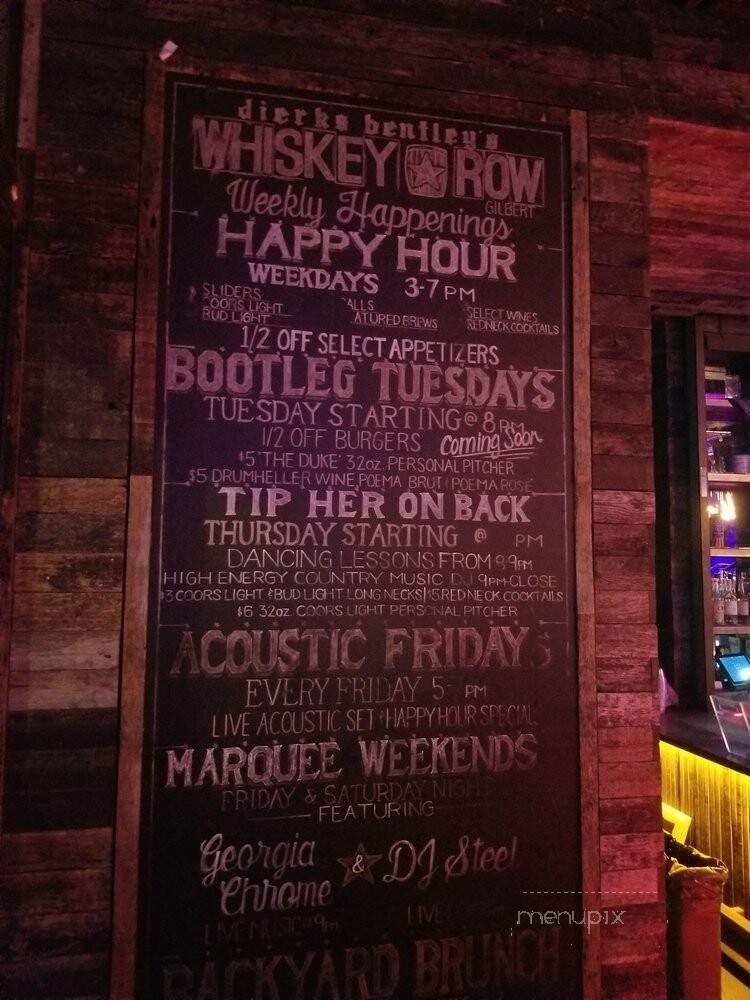 dierks bentley's
WHISKEY ROW
GILBERT
Weekly Happenings
HAPPY HOUR
WEEKDAYS 3-7 PM
SLIDERS
COORS LIGHT ATURED BREWS SELECT WINES
BUD LIGHT REDNECK COCKTAILS
1/2 OFF SELECT APPETIZERS
BOOTLEG TUESDAYS
TUESDAY STARTING @ 8 PM
1/2 OFF BURGERS Coming Soon
$5 "THE DUKE" 32oz. PERSONAL PITCHER
$5 DRUMHELLER WINE, POEMA BRUT | POEMA ROSE
TIP HER ON BACK
THURSDAY STARTING @ PM
DANCING LESSONS FROM 8-9pm
HIGH ENERGY COUNTRY MUSIC DJ 9pm-CLOSE
$3 COORS LIGHT & BUD LIGHT LONG NECKS | $5 REDNECK COCKTAILS
$6 32oz. COORS LIGHT PERSONAL PITCHER
ACOUSTIC FRIDAYS
EVERY FRIDAY 5- PM
LIVE ACOUSTIC SET HAPPY HOUR SPECIAL
MARQUEE WEEKENDS
FRIDAY & SATURDAY NIGH
FEATURING
Georgia Chrome & DJ Steel
LIVE MUSIC @ 9pm LIVE
BACKYARD BRUNCH
menupix